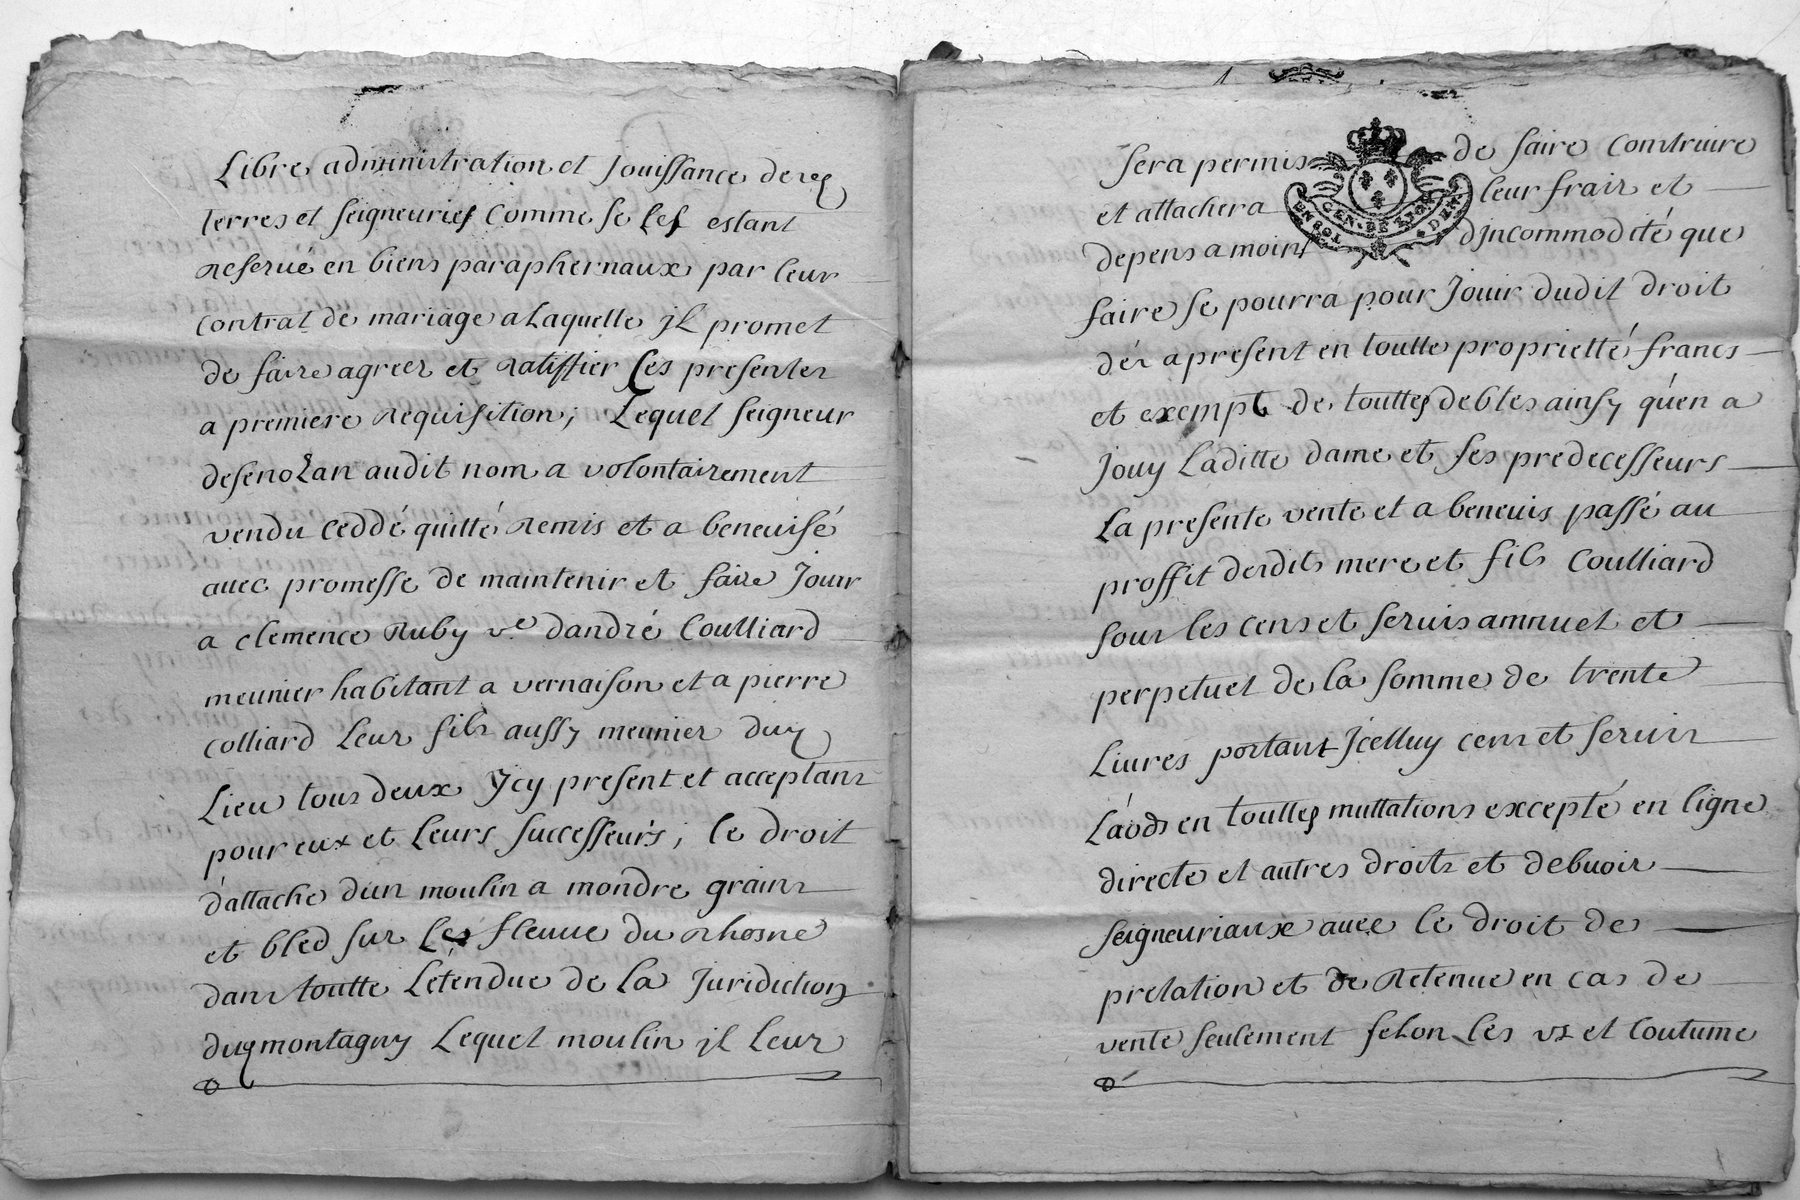 Libre administration et Jouissance desd
terres et seigneuries comme se les estant
Reserué en biens paraphernaux par leur
contrat de mariage a Laquelle jl promet
de faire agreer et Ratiffier Ces presentes
a premiere Requisition; Lequel seigneur
desenozan audit nom a volontairement
vendu ceddé quitté Remis et a beneuisé
auec promesse de maintenir et faire Jouir
a clemence Ruby ve. dandré Coulliard
meunier habitant a vernaison et a pierre
colliard Leur fils aussy meunier dud
Lieu tous deux Ycy present et acceptans
pour eux et Leurs successeurs; le droit
d'attache dun moulin a mondre grains
et bled sur Le fleuue du Rhosne
dans toutte L'étendue de La Juridiction
dud montagny Lequel moulin jl leur
sera permis de faire construire
et attacher a leur frais et
depens a moins d'incommodité que
faire se pourra pour Jouir dudit droit
dés apresent en toutte proprietté francs
et exempt de touttes debtes ainsy qu'en a
Jouy Laditte dame et ses predecesseurs
La presente vente et a beneuis passé au
proffit desdits mere et fils Coulliard
sous les cens et seruis annuel et
perpetuel de la somme de trente
Liures portant Jcelluy cens et seruis
Laods en touttes muttations excepté en ligne
directe et autres droits et debuoir
seigneuriaux auec le droit de
prelation et de Retenue en cas de
vente seulement selon les us et coutume
GEN. DE LION